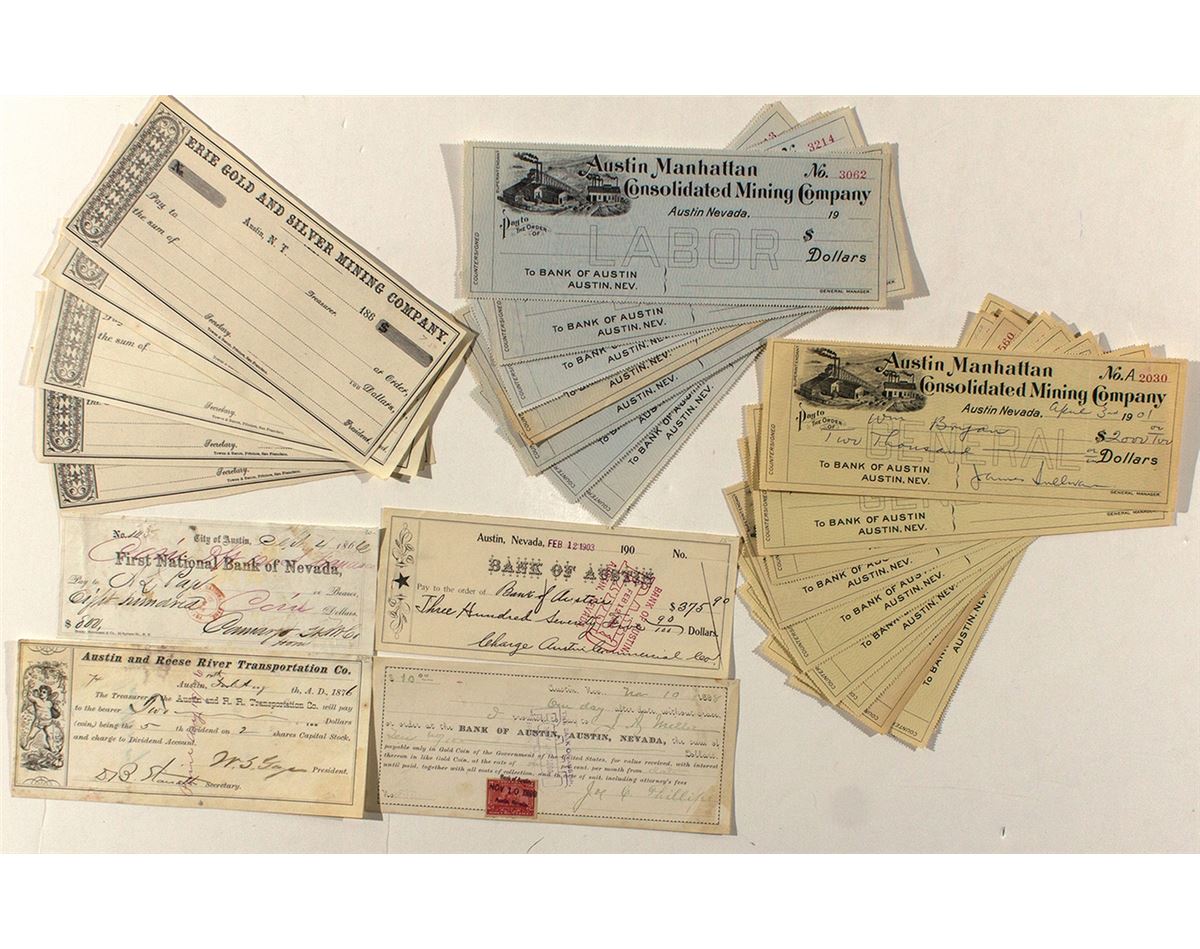 ERIE GOLD AND SILVER MINING COMPANY.
No.
Austin, N. T. 186
Pay to
the sum of
$
or Order,
100 Dollars,
Treasurer.
Secretary.
President.
Towne & Bacon, Printers, San Francisco.
Pay
the sum of
Secretary.
Towne & Bacon, Printers, San Francisco.
Secretary.
Towne & Bacon, Printers, San Francisco.
Secretary.
Towne & Bacon, Printers, San Francisco.
3214
Austin Manhattan
Consolidated Mining Company
No. 3062
Austin Nevada. 19
Pay to
THE ORDER
OF
$
LABOR
Dollars
To BANK OF AUSTIN
AUSTIN, NEV.
GENERAL MANAGER.
COUNTERSIGNED
SUPERINTENDENT
To BANK OF AUSTIN
AUSTIN. NEV.
To BANK OF AUSTIN
AUSTIN. NEV.
To BANK OF AUSTIN
AUSTIN. NEV.
560
Austin Manhattan
Consolidated Mining Company
No. A 2030
Austin Nevada. April 3rd 1901
Pay to
THE ORDER
OF
Wm Bryan
$2000 00/100
Two Thousand
GENERAL
Dollars
To BANK OF AUSTIN
AUSTIN. NEV.
James Sullivan
GENERAL MANAGER
COUNTERSIGNED
SUPERINTENDENT
To BANK OF AUSTIN
AUSTIN. NEV.
To BANK OF AUSTIN
AUSTIN. NEV.
To BANK OF AUSTIN
AUSTIN. NEV.
City of Austin, 1866
First National Bank of Nevada,
Pay to
or Bearer,
Eight hundred
Coin
Dollars.
$ 800,
Austin, Nevada, FEB 12 1903 190 No.
BANK OF AUSTIN
Pay to the order of Bank of Austin $375 90
Three Hundred Seventy Five 90/100 Dollars.
Charge Austin Commercial Co.
BANK OF AUSTIN
Austin and Reese River Transportation Co.
Austin, th, A. D., 1876
The Treasurer of the Austin and R. R. Transportation Co. will pay
to the bearer Two 100 Dollars
(coin,) being the 5 th dividend on 2 shares Capital Stock,
and charge to Dividend Account.
President.
Secretary.
$10.00
Austin, Nev. Nov 10
One day after date, without grace,
or order at the BANK OF AUSTIN, AUSTIN, NEVADA, the sum of
Dollars,
payable only in Gold Coin of the Government of the United States, for value received, with interest
thereon in like Gold Coin, at the rate of per cent. per month from
until paid, together with all costs of collection, and in case of suit, including attorney's fees
Phillips
NOV 10
Austin, Nevada.